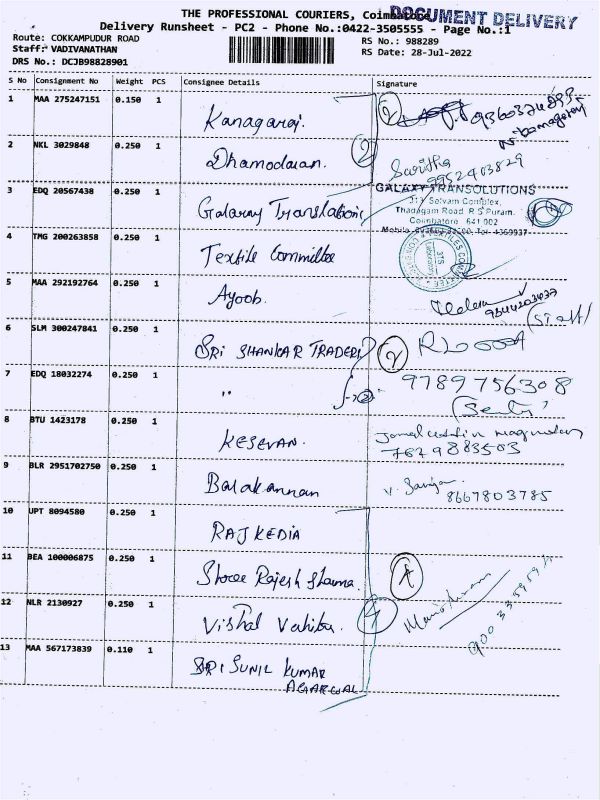 THE PROFESSIONAL COURIERS, Coimbatore
DOCUMENT DELIVERY
Delivery Runsheet - PC2 - Phone No.:0422-3505555 - Page No.:1
Route: COKKAMPUDUR ROAD
RS No.: 988289
Staff: VADIVANATHAN
RS Date: 28-Jul-2022
DRS No.: DCJB98828901
S No Consignment No Weight PCS Consignee Details Signature
1 MAA 275247151 0.150 1 Kanagaraj. 2
2 NKL 3029848 0.250 1 Dhamodaran. 2 Saritha
9952403829
3 EDQ 20567438 0.250 1 Galaxy Translations
GALAXY TRANSOLUTIONS
Selvam Complex,
Thadagam Road R S Puram.
Coimbatore 641 002
4 TMG 200263858 0.250 1 Textile Committee
5 MAA 292192764 0.250 1 Ayoob.
(Staff)
6 SLM 300247841 0.250 1 SRI SHANKAR TRADERS 2
7 EDQ 18032274 0.250 1 " 2 9789756308
8 BTU 1423178 0.250 1 KESEVAN.
7629883503
9 BLR 2951702750 0.250 1 Balakannan
8667803785
10 UPT 8094580 0.250 1 RAJ KEDIA
11 BEA 100006875 0.250 1 Shree Rajesh Sharma.
12 NLR 2130927 0.250 1 Vishal 4
13 MAA 567173839 0.110 1 SRI SUNIL KUMAR
AGARWAL